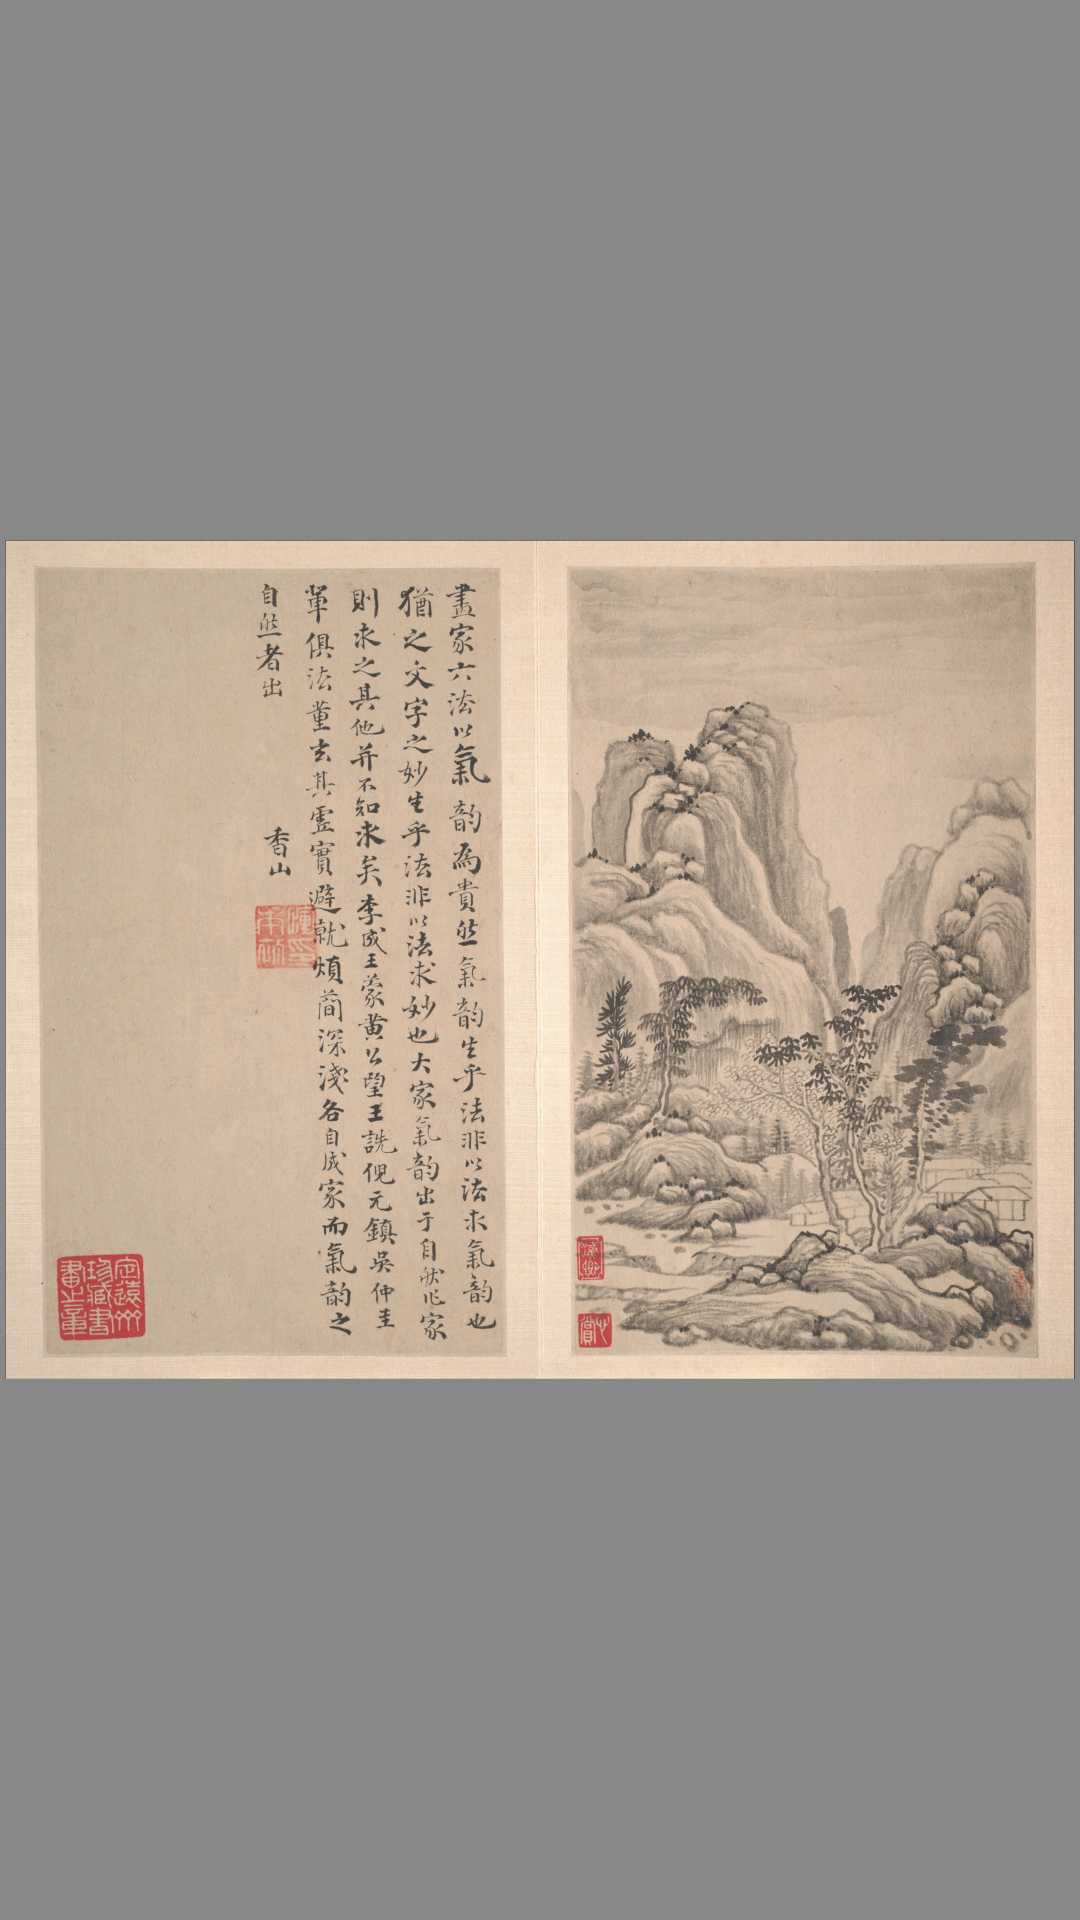 畫家六法以氣韵為貴然氣韵生乎法非以法求氣韵也
猶之文字之妙生乎法非以法求妙也大家氣韵出于自然作家
則求之其他并不知求矣李成王蒙黄公望王詵倪元鎮吳仲圭
輩俱法董玄其虛實避就煩簡深淺各自成家而氣韵之
自然者出
香山
定遠
珍藏書
畫之章
心賞